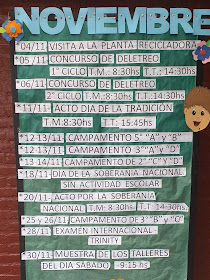 NOVIEMBRE
*04/11-VISITA A LA PLANTA RECICLADORA
*05/11-CONCURSO DE DELETREO
1° CICLO T.M.: 8:30hs T.T.: 14:30hs
*06/11-CONCURSO DE DELETREO
2° CICLO T.M.: 8:30hs T.T.: 14:30hs
*11/11- ACTO DIA DE LA TRADICIÓN
T.M:8:30hs T.T: 15:45hs
*12-13/11- CAMPAMENTO 5° "A" y "B"
*12-13/11- CAMPAMENTO 3° "A"y"D"
*13-14/11-CAMPAMENTO DE 2° "C" Y "D"
*18/11-DIA DE LA SOBERANIA NACIONAL
SIN ACTIVIDAD ESCOLAR
*20/11-ACTO POR LA SOBERANIA
NACIONAL T.M: 8:30hs T.T: 14:30hs
*25 y 26/11-CAMPAMENTO DE 3° "B" y "C"
*28/11- EXAMEN INTERNACIONAL
TRINITY
*30/11-MUESTRA DE LOS TALLERES
DEL DIA SABADO 9:15 hs